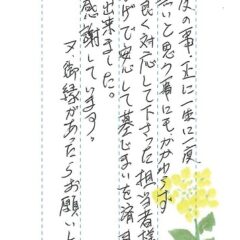 度の事、正に一生に一度
ないと思う事にもかかわらず
良く対応して下さった担当者様
げで安心して墓じまいを済ま
出来ました。
感謝しています。
又御縁があったらお願いし